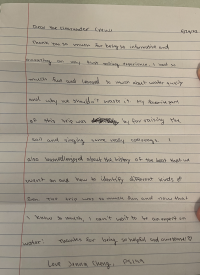 Dear the Clearwater Crew,
Thank you so much for being so informative and
on my first sailing experience. I had so
much fun and learned so much about water quality
and why we shouldn't waste it. My favorite part
of this trip was by far raising the
sail and singing some really catchy songs. I
also learned about the history of the boat that we
went on and how to identify different kinds of
fish. The trip was so much fun and now that
I know so much, I can't wait to be an expert on
water! Thanks for being so helpful and awesome!
Love Sienna Cheng,